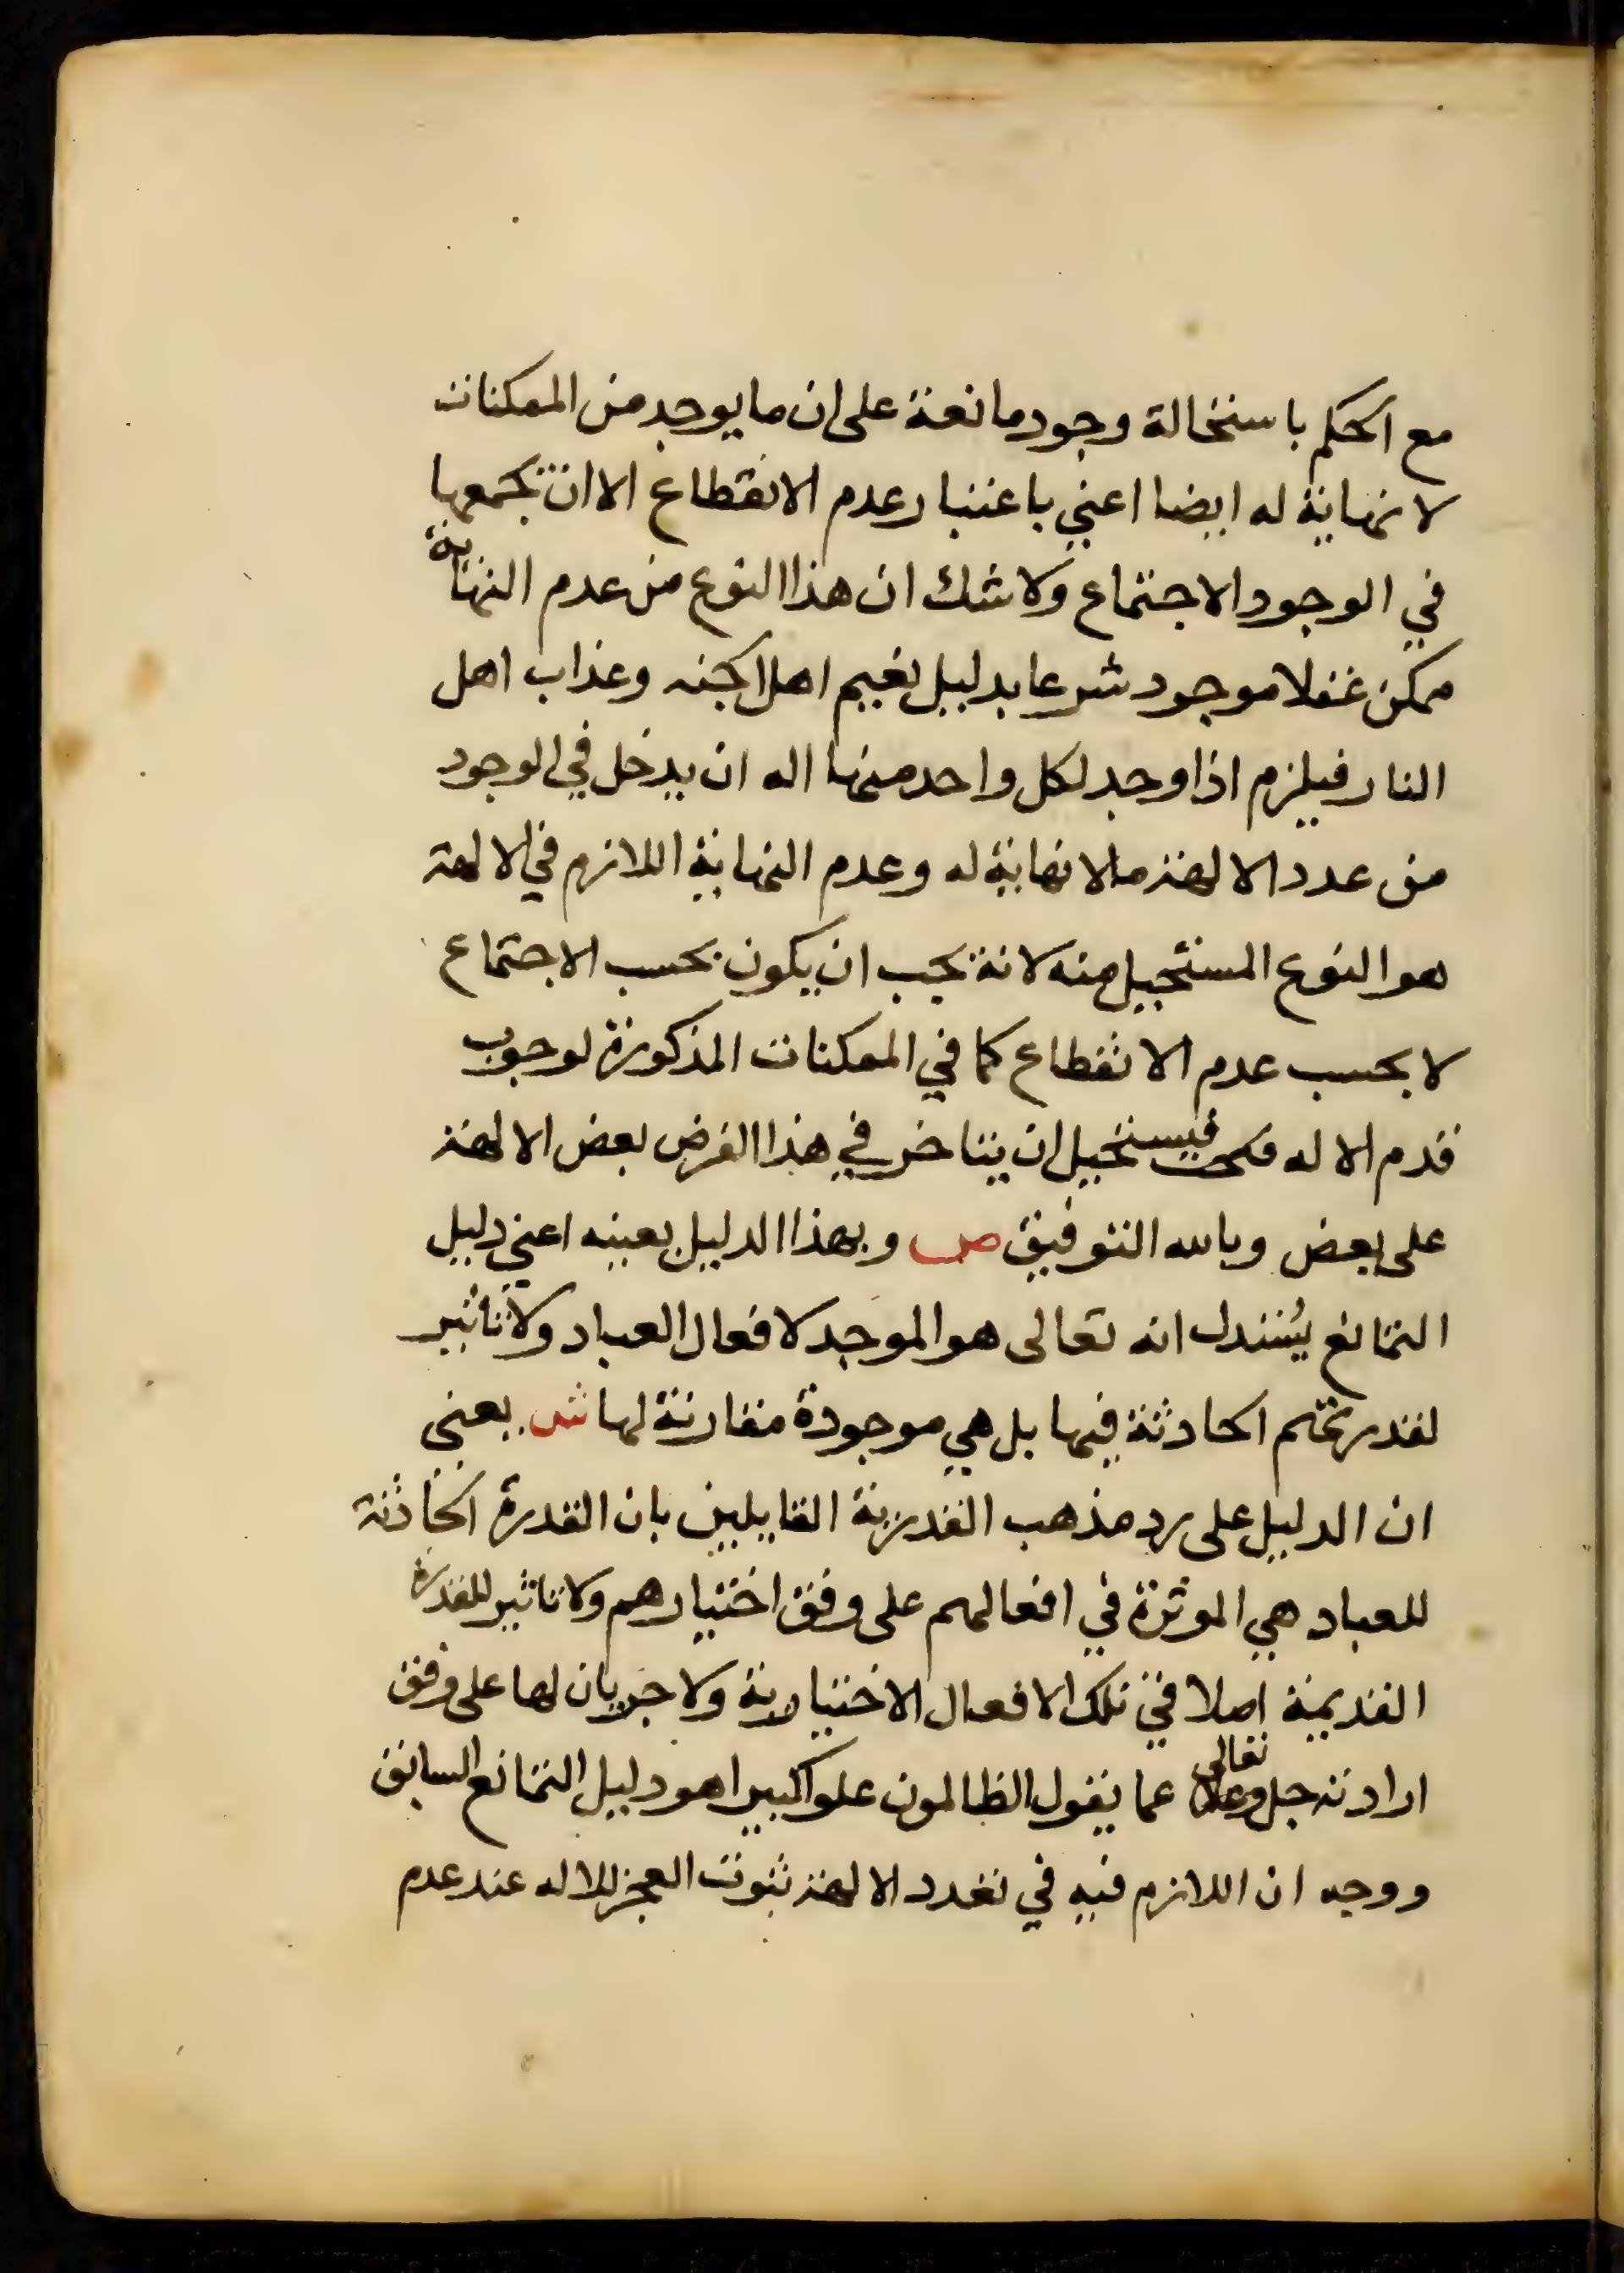 مع الحكم باستحالة وجود مانعة على ان ما يوجد من الممكنات
لا نهاية له ايضا اعني باعتبار عدم الانقطاع الا ان تجمعها
في الوجود الاجتماع ولا شك ان هذا النوع من عدم النهاية
ممكن عقلا موجود شرعا بدليل نعيم اهل الجنه وعذاب اهل
النار فيلزم اذا وجد لكل واحد منها اله ان يدخل في الوجود
من عدد الالهة ما لا نهاية له وعدم النهاية اللازم في الالهة
هو النوع المستحيل منه لانه يجب ان يكون بحسب الاجتماع
لا بحسب عدم الانقطاع كما في الممكنات المذكورة لوجوب
قدم الاله فيستحيل ان يتاخر في هذا الفرض بعض الالهة
على بعض وبالله التوفيق ص وبهذا الدليل بعينه اعني دليل
التمانع يُستدل انه تعالى هو الموجد لافعال العباد ولا تاثير
لقدرتهم الحادثة فيها بل هي موجودة مقارنة لها ش يعني
ان الدليل على رد مذهب القدرية القايلين بان القدرة الحادثة
للعباد هي الموثرة في افعالهم على وفق اختيارهم ولا تاثير للقدرة
القديمة اصلا في تلك الافعال الاختيارية ولا جريان لها على وفق
ارادته جل وعلا تعالى عما يقول الظالمون علوا كبيرا هو دليل التمانع السابق
ووجه ان اللازم فيه في تعدد الالهة ثبوت العجز للاله عند عدم